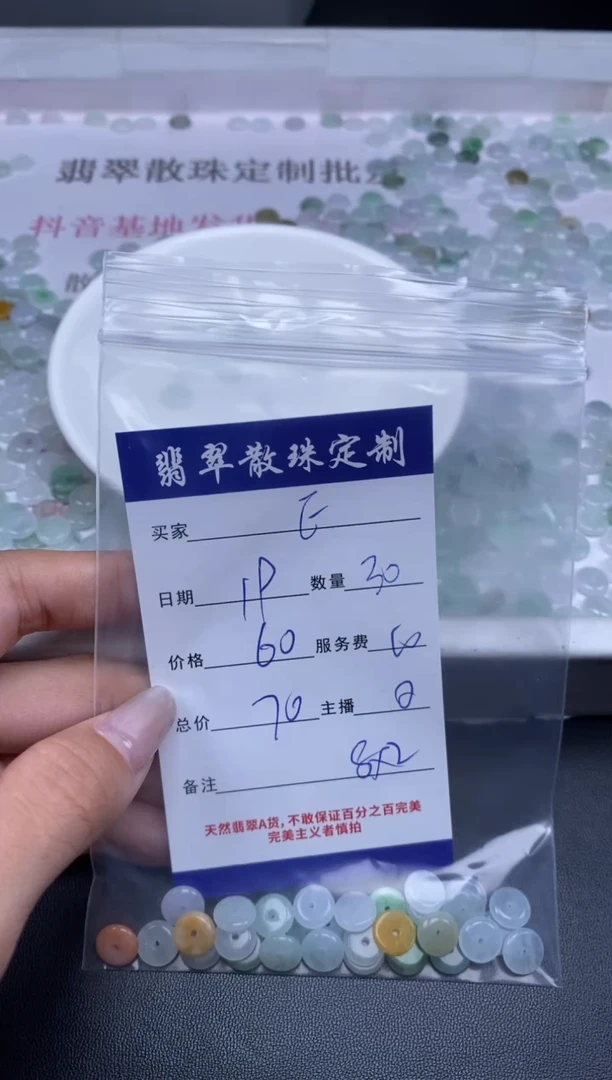 翡翠散珠定制批
抖音基地发
散
翡翠散珠定制
买家 E
日期 1P 数量 30
价格 60 服务费
总价 70 主播
备注 8x2
天然翡翠A货,不敢保证百分之百完美
完美主义者慎拍